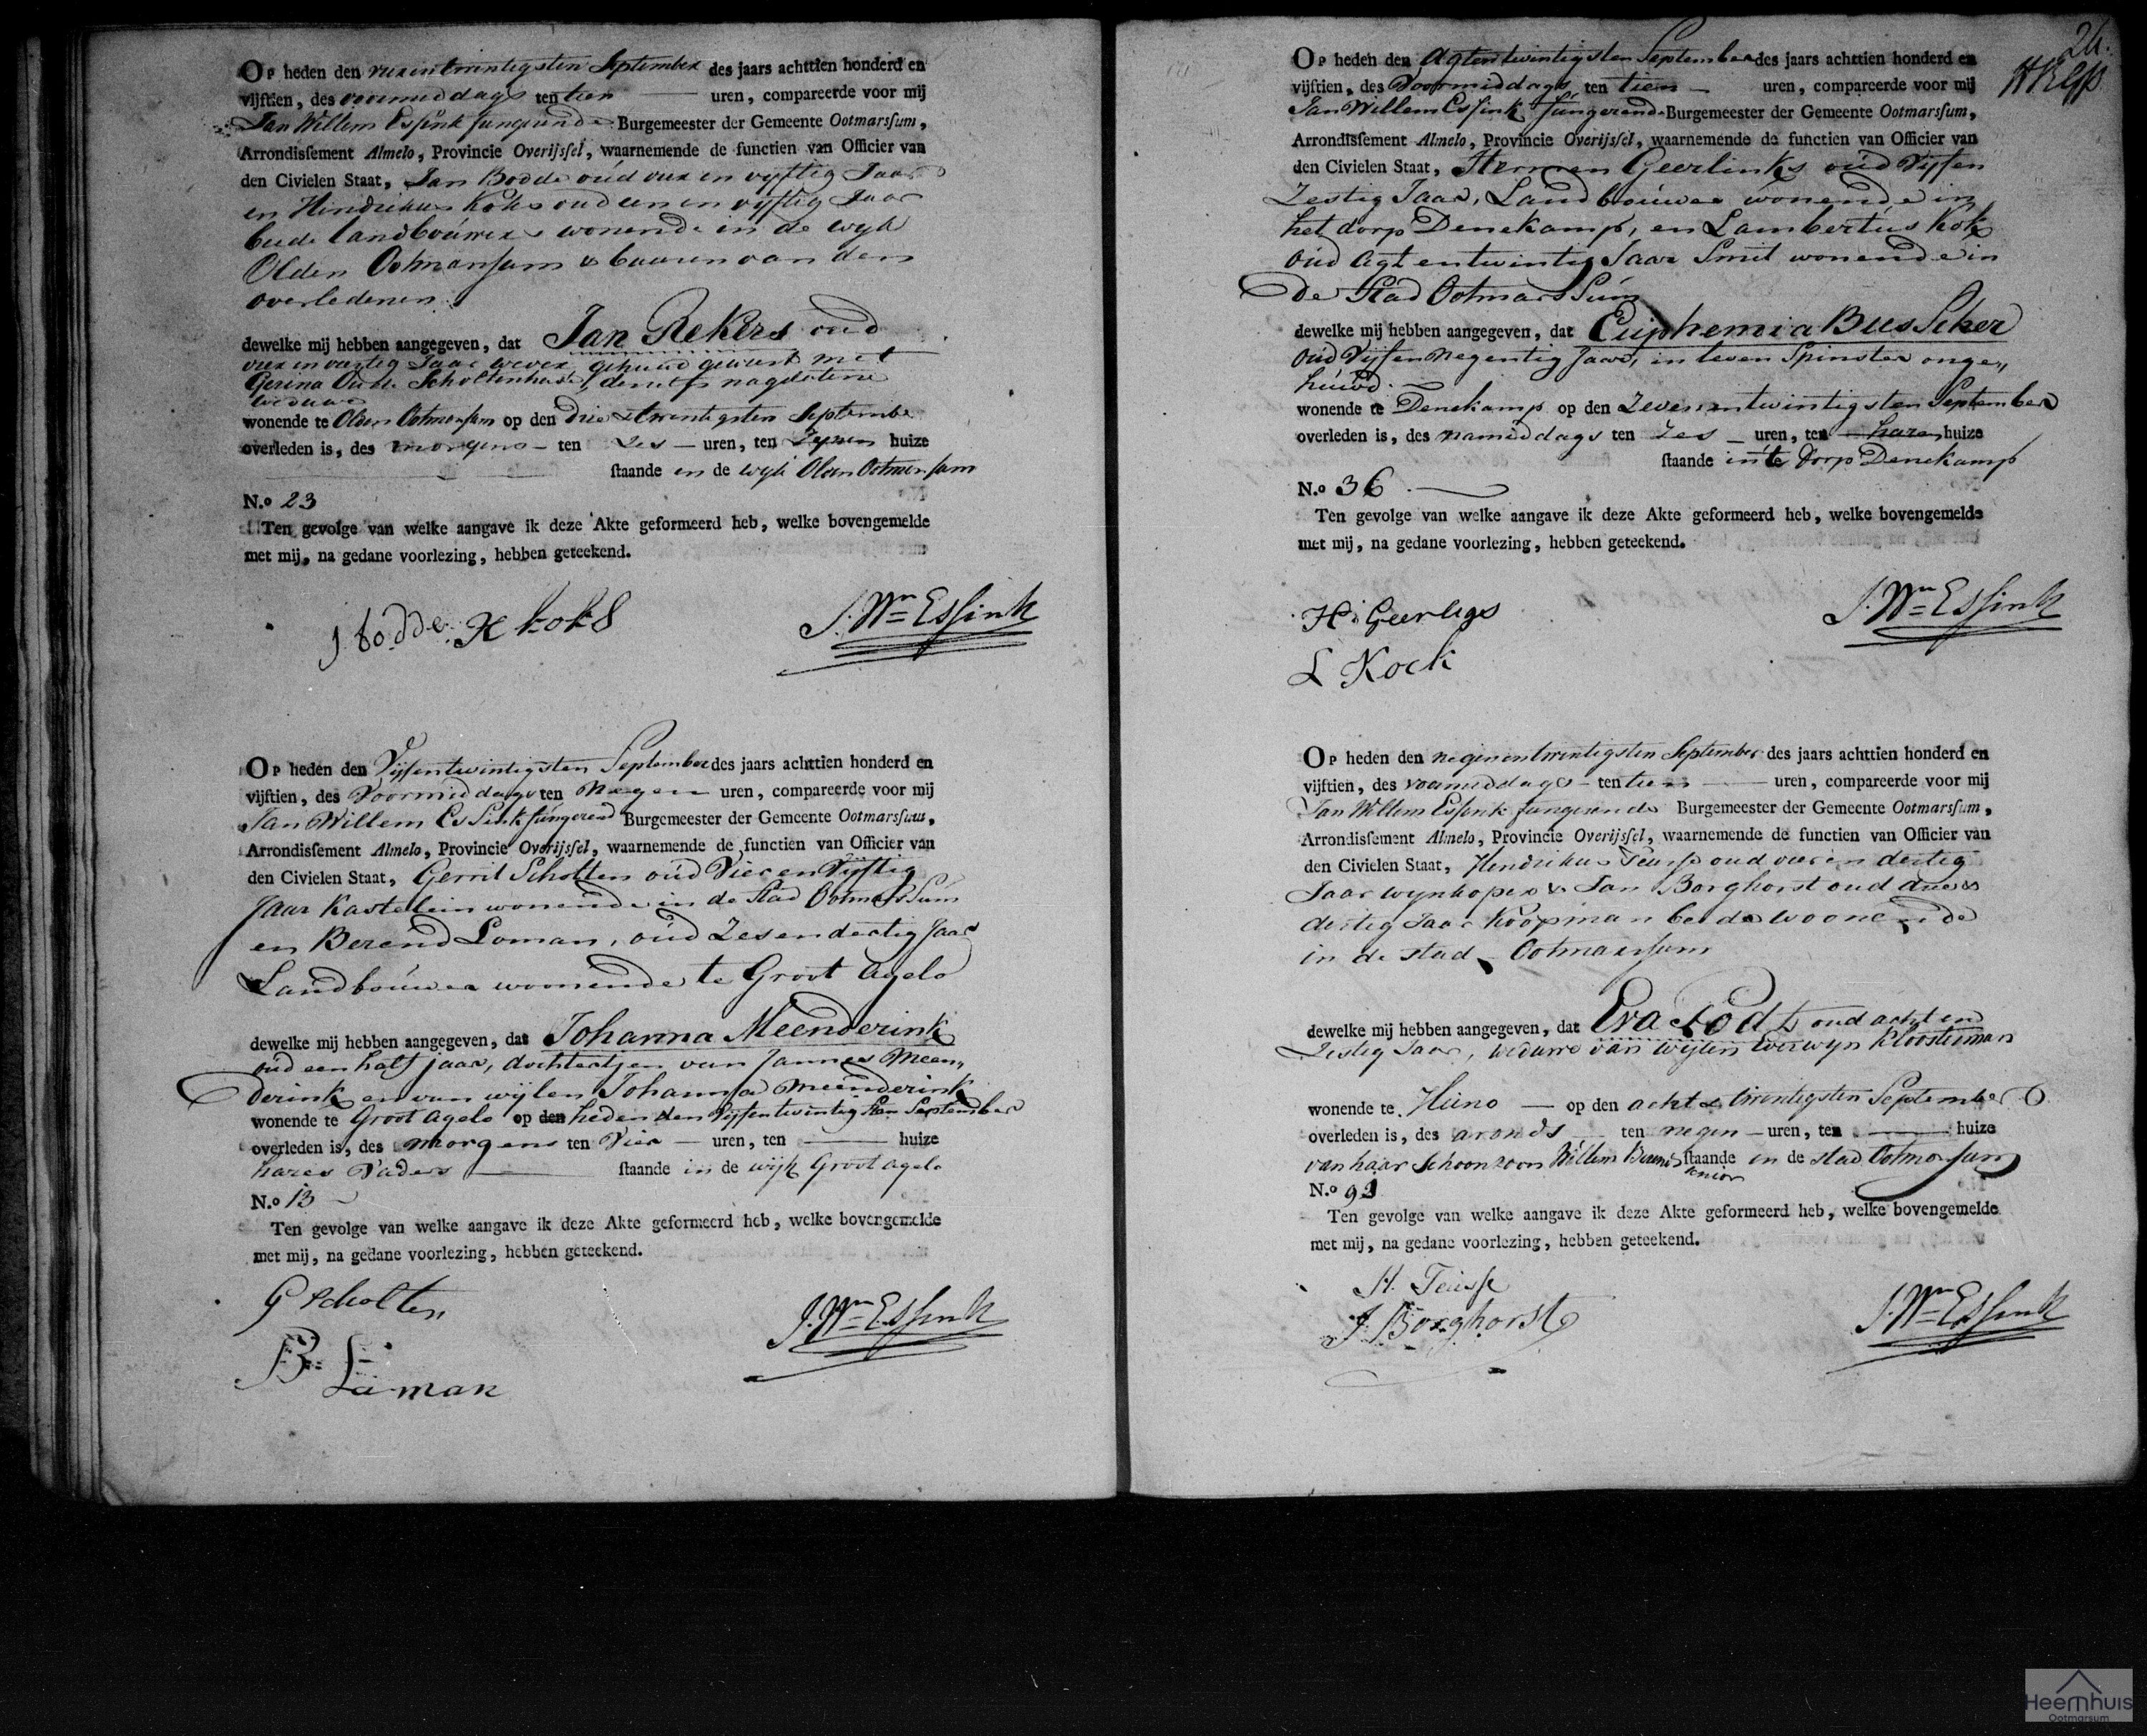 Op heden den vierentwintigsten September des jaars achttien honderd en
vijftien, des voormiddags ten tien uren, compareerde voor mij
Jan Willem Essink fungerende Burgemeester der Gemeente Ootmarssum,
Arrondissement Almelo, Provincie Overijssel, waarnemende de functien van Officier van
den Civielen Staat, Jan Bodde oud vier en vyftig Jaar
en Hindrikus Koks oud een en vyftig Jaar
beide landbouwers wonende in de wyk
Olden Ootmarssum & buuren van den
overledenen
dewelke mij hebben aangegeven, dat Jan Rekers oud
vier en veertig Jaar wever gehuwd geweest met
Gerina Oude Scholtenhuis, denzelfs nagelatene
weduwe
wonende te Olden Ootmarssum op den drie & twentigsten September
overleden is, des morgens ten zes uren, ten zynen huize
staande in de wyk Olden Ootmarssum
N.o 23
Ten gevolge van welke aangave ik deze Akte geformeerd heb, welke bovengemelde
met mij, na gedane voorlezing, hebben geteekend.
J Bodde H koks J. Wm Essink
Op heden den Vijfentwintigsten September des jaars achttien honderd en
vijftien, des Voormiddags ten Negen uren, compareerde voor mij
Jan Willem Essink fungerend Burgemeester der Gemeente Ootmarssum,
Arrondissement Almelo, Provincie Overijssel, waarnemende de functien van Officier van
den Civielen Staat, Gerrit Scholten oud Vier en Vijftig
Jaar Kastelein wonende in de Stad Ootmarssum
en Berend Loman, oud Zesendertig Jaar
Landbouwer woonende te Groot Agelo
dewelke mij hebben aangegeven, dat Johanna Meenderink
oud een half jaar, dochtertjen van Jannes Meen„
derink en van wijlen Johanna Meenderink
wonende te Groot Agelo op den heden den Vijfentwintigsten September
overleden is, des morgens ten Vier uren, ten huize
hares Vaders staande in de wijk Groot agelo
N.o 13
Ten gevolge van welke aangave ik deze Akte geformeerd heb, welke bovengemelde
met mij, na gedane voorlezing, hebben geteekend.
G Scholten
J. Wm Essink
B Laman
26.
Op heden den Agtentwintigsten September des jaars achttien honderd en
vijftien, des Voormiddags ten tien uren, compareerde voor mij
Jan Willem Essink fungerende Burgemeester der Gemeente Ootmarssum,
Arrondissement Almelo, Provincie Overijssel, waarnemende de functien van Officier van
den Civielen Staat, Hermen Geerlinks oud Vijfen
Zestig Jaar, Landbouwer wonende in
het dorp Denekamp, en Lambertus Kok
oud Agt entwintig Jaar Smit wonende in
De Stad Ootmarssum
dewelke mij hebben aangegeven, dat Euphemia Busscher
oud Vijfennegentig Jaar, in leven Spinster onge„
huwd.
wonende te Denekamp op den Zevenentwintigsten September
overleden is, des namiddags ten Zes uren, ten haren huize
staande in 't Dorp Denekamp
N.o 36
Ten gevolge van welke aangave ik deze Akte geformeerd heb, welke bovengemelde
met mij, na gedane voorlezing, hebben geteekend.
H. Geerligs J. Wm Essink
L Kock
Op heden den negenentwintigsten September des jaars achttien honderd en
vijftien, des voormiddags ten tien uren, compareerde voor mij
Jan Willem Essink fungerende Burgemeester der Gemeente Ootmarssum,
Arrondissement Almelo, Provincie Overijssel, waarnemende de functien van Officier van
den Civielen Staat, Hendrikus Teusse oud vier en dertig
Jaar wynkoper & Jan Borghorst oud drie &
dertig Jaar Koopman beide woonende
in de stad Ootmarssum
dewelke mij hebben aangegeven, dat Eva Podt oud acht en
Zestig Jaar, weduwe van wylen Everwyn Kloosterman
wonende te Heino op den acht & twentigsten September
overleden is, des avonds ten negen uren, ten huize
van haar Schoonzoon Willem staande in de stad Ootmarssum
senior
N.o 93
Ten gevolge van welke aangave ik deze Akte geformeerd heb, welke bovengemelde
met mij, na gedane voorlezing, hebben geteekend.
H. Teusse
J. Borghorst J. Wm Essink
Heemhuis
Ootmarsum